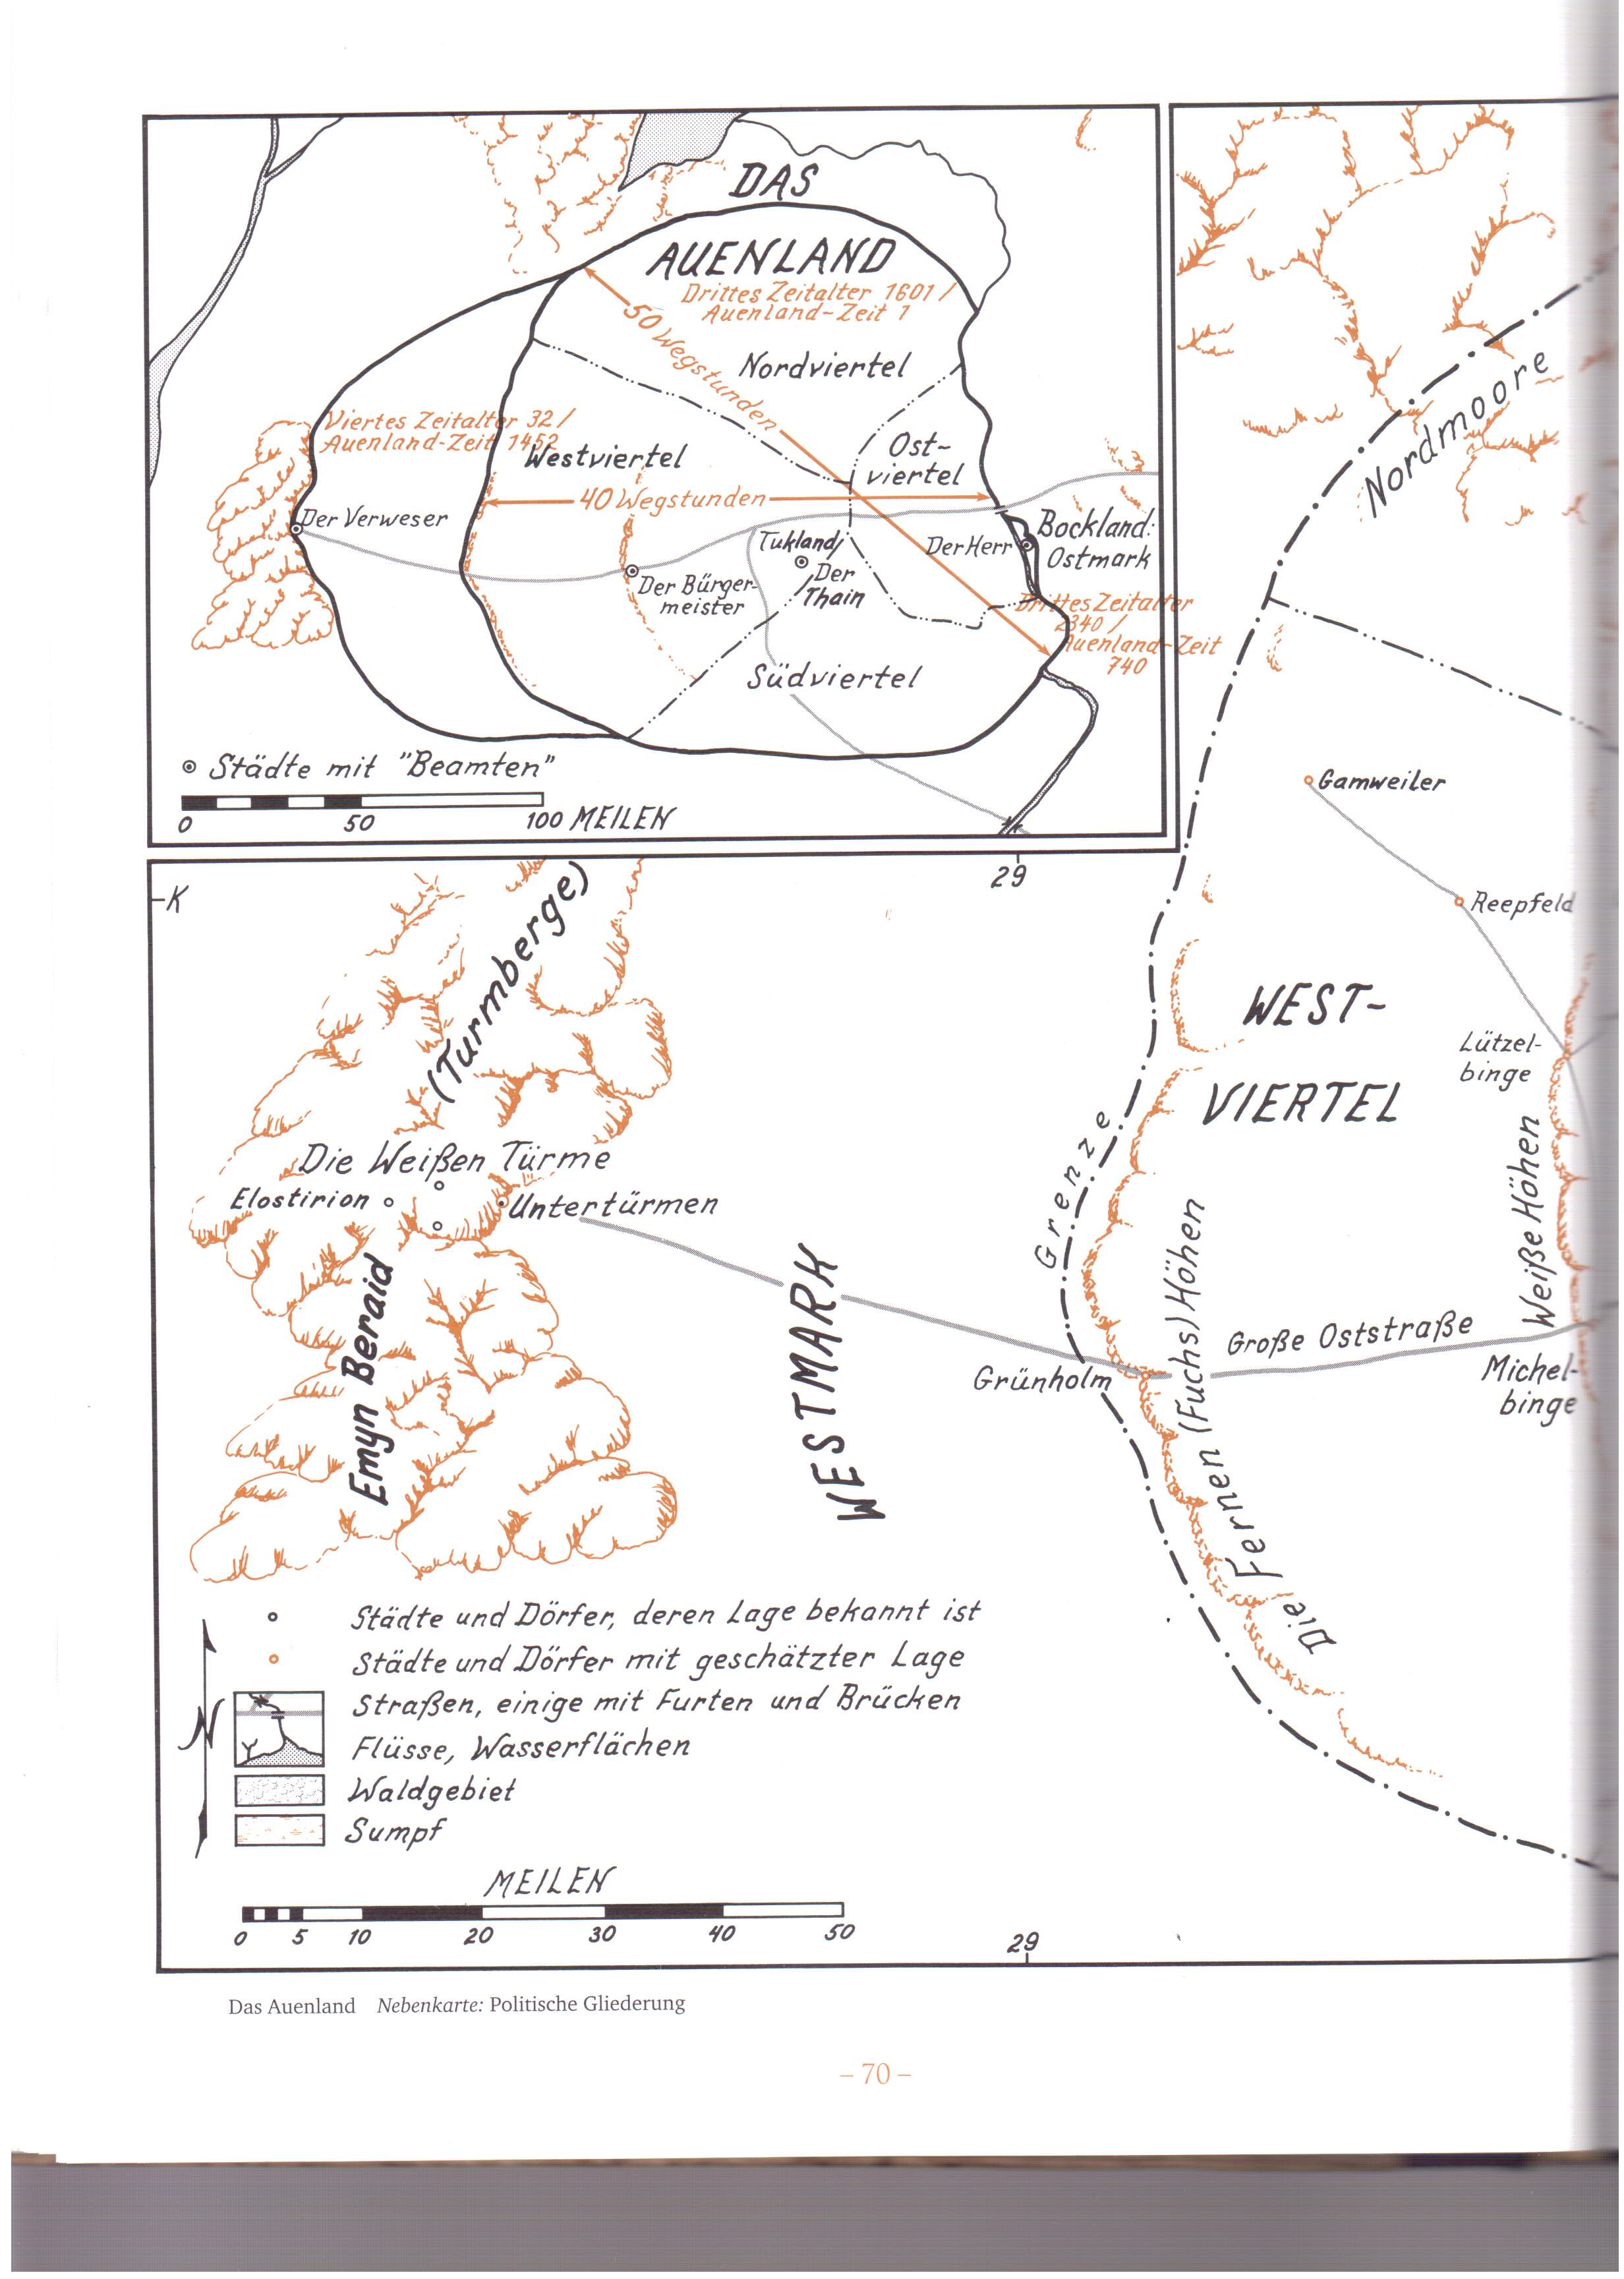 DAS
AUENLAND
Drittes Zeitalter 1601 /
Auenland-Zeit 1
50 Wegstunden
Nordviertel
Viertes Zeitalter 32 /
Auenland-Zeit 1452
Westviertel
Ost-
viertel
40 Wegstunden
Der Verweser
Tukland/
Der
Thain
Der Herr
Bockland:
Ostmark
Der Bürger-
meister
Drittes Zeitalter
2340 /
Auenland-Zeit
740
Südviertel
Städte mit "Beamten"
0 50 100 MEILEN
Nordmoore
Gamweiler
Reepfeld
29
K
(Turmberge)
WEST-
VIERTEL
Lützel-
binge
Grenze
Weiße Höhen
Die Weißen Türme
Elostirion
Untertürmen
Emyn Beraid
WESTMARK
Große Oststraße
Grünholm
Michel-
binge
Die Fernen (Fuchs) Höhen
Städte und Dörfer, deren Lage bekannt ist
Städte und Dörfer mit geschätzter Lage
Straßen, einige mit Furten und Brücken
Flüsse, Wasserflächen
Waldgebiet
Sumpf
N
MEILEN
0 5 10 20 30 40 50
29
Das Auenland Nebenkarte: Politische Gliederung
– 70 –